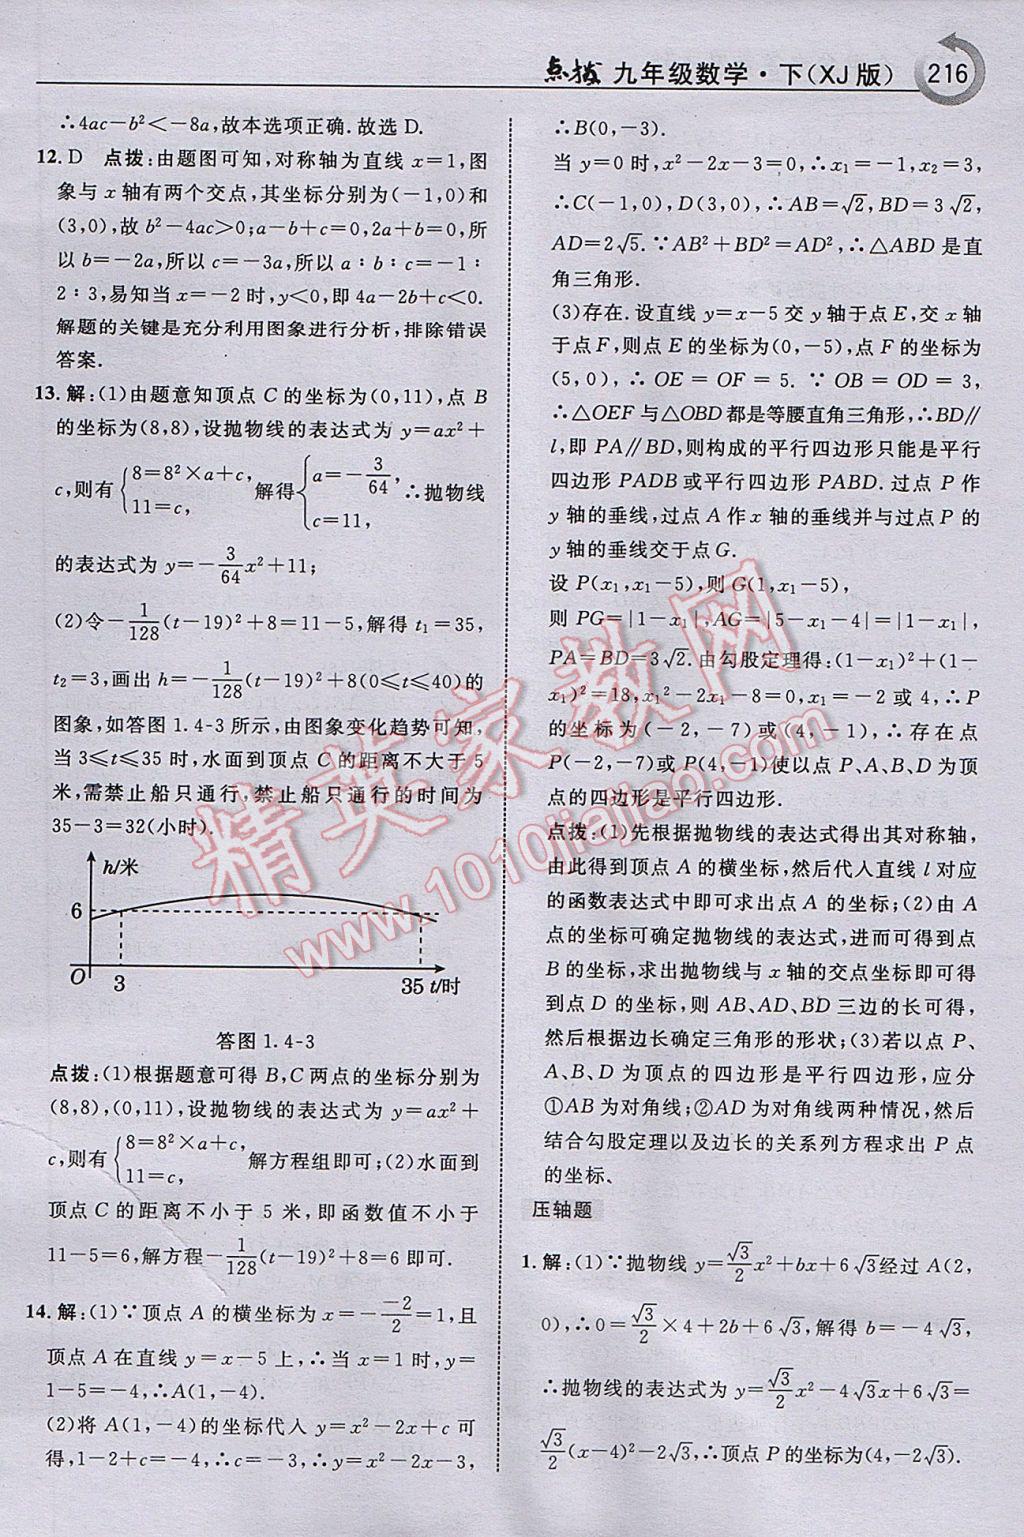 点拨 九年级数学·下(XJ版) 216
∴4ac－b²＜－8a,故本选项正确.故选 D.
12. D 点拨:由题图可知,对称轴为直线 x＝1,图
象与 x 轴有两个交点,其坐标分别为(－1,0)和
(3,0),故 b²－4ac＞0;a－b＋c＝0,2a＋b＝0,所
以 b＝－2a,所以 c＝－3a,所以 a∶b∶c＝－1∶
2∶3,易知当 x＝－2 时,y＜0,即 4a－2b＋c＜0.
解题的关键是充分利用图象进行分析,排除错误
答案.
13. 解:(1)由题意知顶点 C 的坐标为(0,11),点 B
的坐标为(8,8),设抛物线的表达式为 y＝ax²＋
c,则有{8＝8²×a＋c, 11＝c, 解得{a＝－3/64, c＝11, ∴抛物线
的表达式为 y＝－3/64x²＋11;
(2)令－1/128(t－19)²＋8＝11－5,解得 t₁＝35,
t₂＝3,画出 h＝－1/128(t－19)²＋8(0≤t≤40)的
图象,如答图 1.4-3 所示,由图象变化趋势可知,
当 3≤t≤35 时,水面到顶点 C 的距离不大于 5
米,需禁止船只通行,禁止船只通行的时间为
35－3＝32(小时).
h/米
6
O 3 35 t/时
答图 1.4-3
点拨:(1)根据题意可得 B,C 两点的坐标分别为
(8,8),(0,11),设抛物线的表达式为 y＝ax²＋
c,则有{8＝8²×a＋c, 11＝c, 解方程组即可;(2)水面到
顶点 C 的距离不小于 5 米,即函数值不大于
11－5＝6,解方程－1/128(t－19)²＋8＝6 即可.
14. 解:(1)∵顶点 A 的横坐标为 x＝－－2/2＝1,且
顶点 A 在直线 y＝x－5 上,∴当 x＝1 时,y＝
1－5＝－4,∴A(1,－4).
(2)将 A(1,－4)的坐标代入 y＝x²－2x＋c 可
得,1－2＋c＝－4,∴c＝－3,∴y＝x²－2x－3,
∴B(0,－3).
当 y＝0 时,x²－2x－3＝0,∴x₁＝－1,x₂＝3,
∴C(－1,0),D(3,0),∴AB＝√2,BD＝3√2,
AD＝2√5.∵AB²＋BD²＝AD²,∴△ABD 是直
角三角形.
(3)存在.设直线 y＝x－5 交 y 轴于点 E,交 x 轴
于点 F,则点 E 的坐标为(0,－5),点 F 的坐标为
(5,0),∴OE＝OF＝5.∵OB＝OD＝3,
∴△OEF 与△OBD 都是等腰直角三角形,∴BD∥
l,即 PA∥BD,则构成的平行四边形只能是平行
四边形 PADB 或平行四边形 PABD.过点 P 作
y 轴的垂线,过点 A 作 x 轴的垂线并与过点 P 的
y 轴的垂线交于点 G.
设 P(x₁,x₁－5),则 G(1,x₁－5),
则 PG＝|1－x₁|,AG＝|5－x₁－4|＝|1－x₁|,
PA＝BD＝3√2.由勾股定理得:(1－x₁)²＋(1－
x₁)²＝18,x₁²－2x₁－8＝0,x₁＝－2 或 4,∴P
的坐标为(－2,－7)或(4,－1),∴存在点
P(－2,－7)或 P(4,－1)使以点 P、A、B、D 为顶
点的四边形是平行四边形.
点拨:(1)先根据抛物线的表达式得出其对称轴,
由此得到顶点 A 的横坐标,然后代入直线 l 对应
的函数表达式中即可求出点 A 的坐标;(2)由 A
点的坐标可确定抛物线的表达式,进而可得到点
B 的坐标,求出抛物线与 x 轴的交点坐标即可得
到点 D 的坐标,则 AB、AD、BD 三边的长可得,
然后根据边长确定三角形的形状;(3)若以点 P、
A、B、D 为顶点的四边形是平行四边形,应分
①AB 为对角线;②AD 为对角线两种情况,然后
结合勾股定理以及边长的关系列方程求出 P 点
的坐标、
压轴题
1. 解:(1)∵抛物线 y＝√3/2x²＋bx＋6√3经过 A(2,
0),∴0＝√3/2×4＋2b＋6√3,解得 b＝－4√3,
∴抛物线的表达式为 y＝√3/2x²－4√3x＋6√3＝
√3/2(x－4)²－2√3,∴顶点 P 的坐标为(4,－2√3).
精英家教网
www.1010jiajiao.com